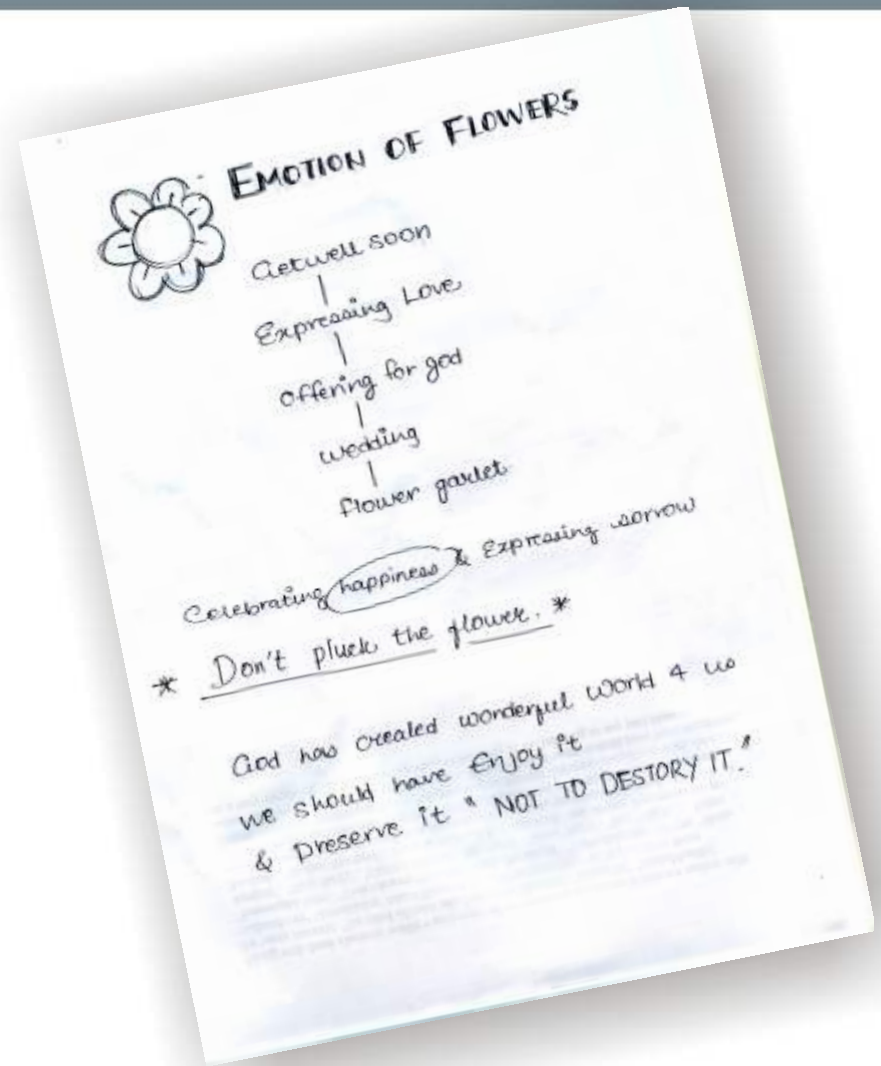 EMOTION OF FLOWERS
Getwell soon
Expressing Love
Offering for god
wedding
flower garlet
Celebrating happiness & Expressing sorrow
* Don't pluck the flower. *
God has created wonderful World 4 us
we should have Enjoy it
& Preserve it " NOT TO DESTORY IT."